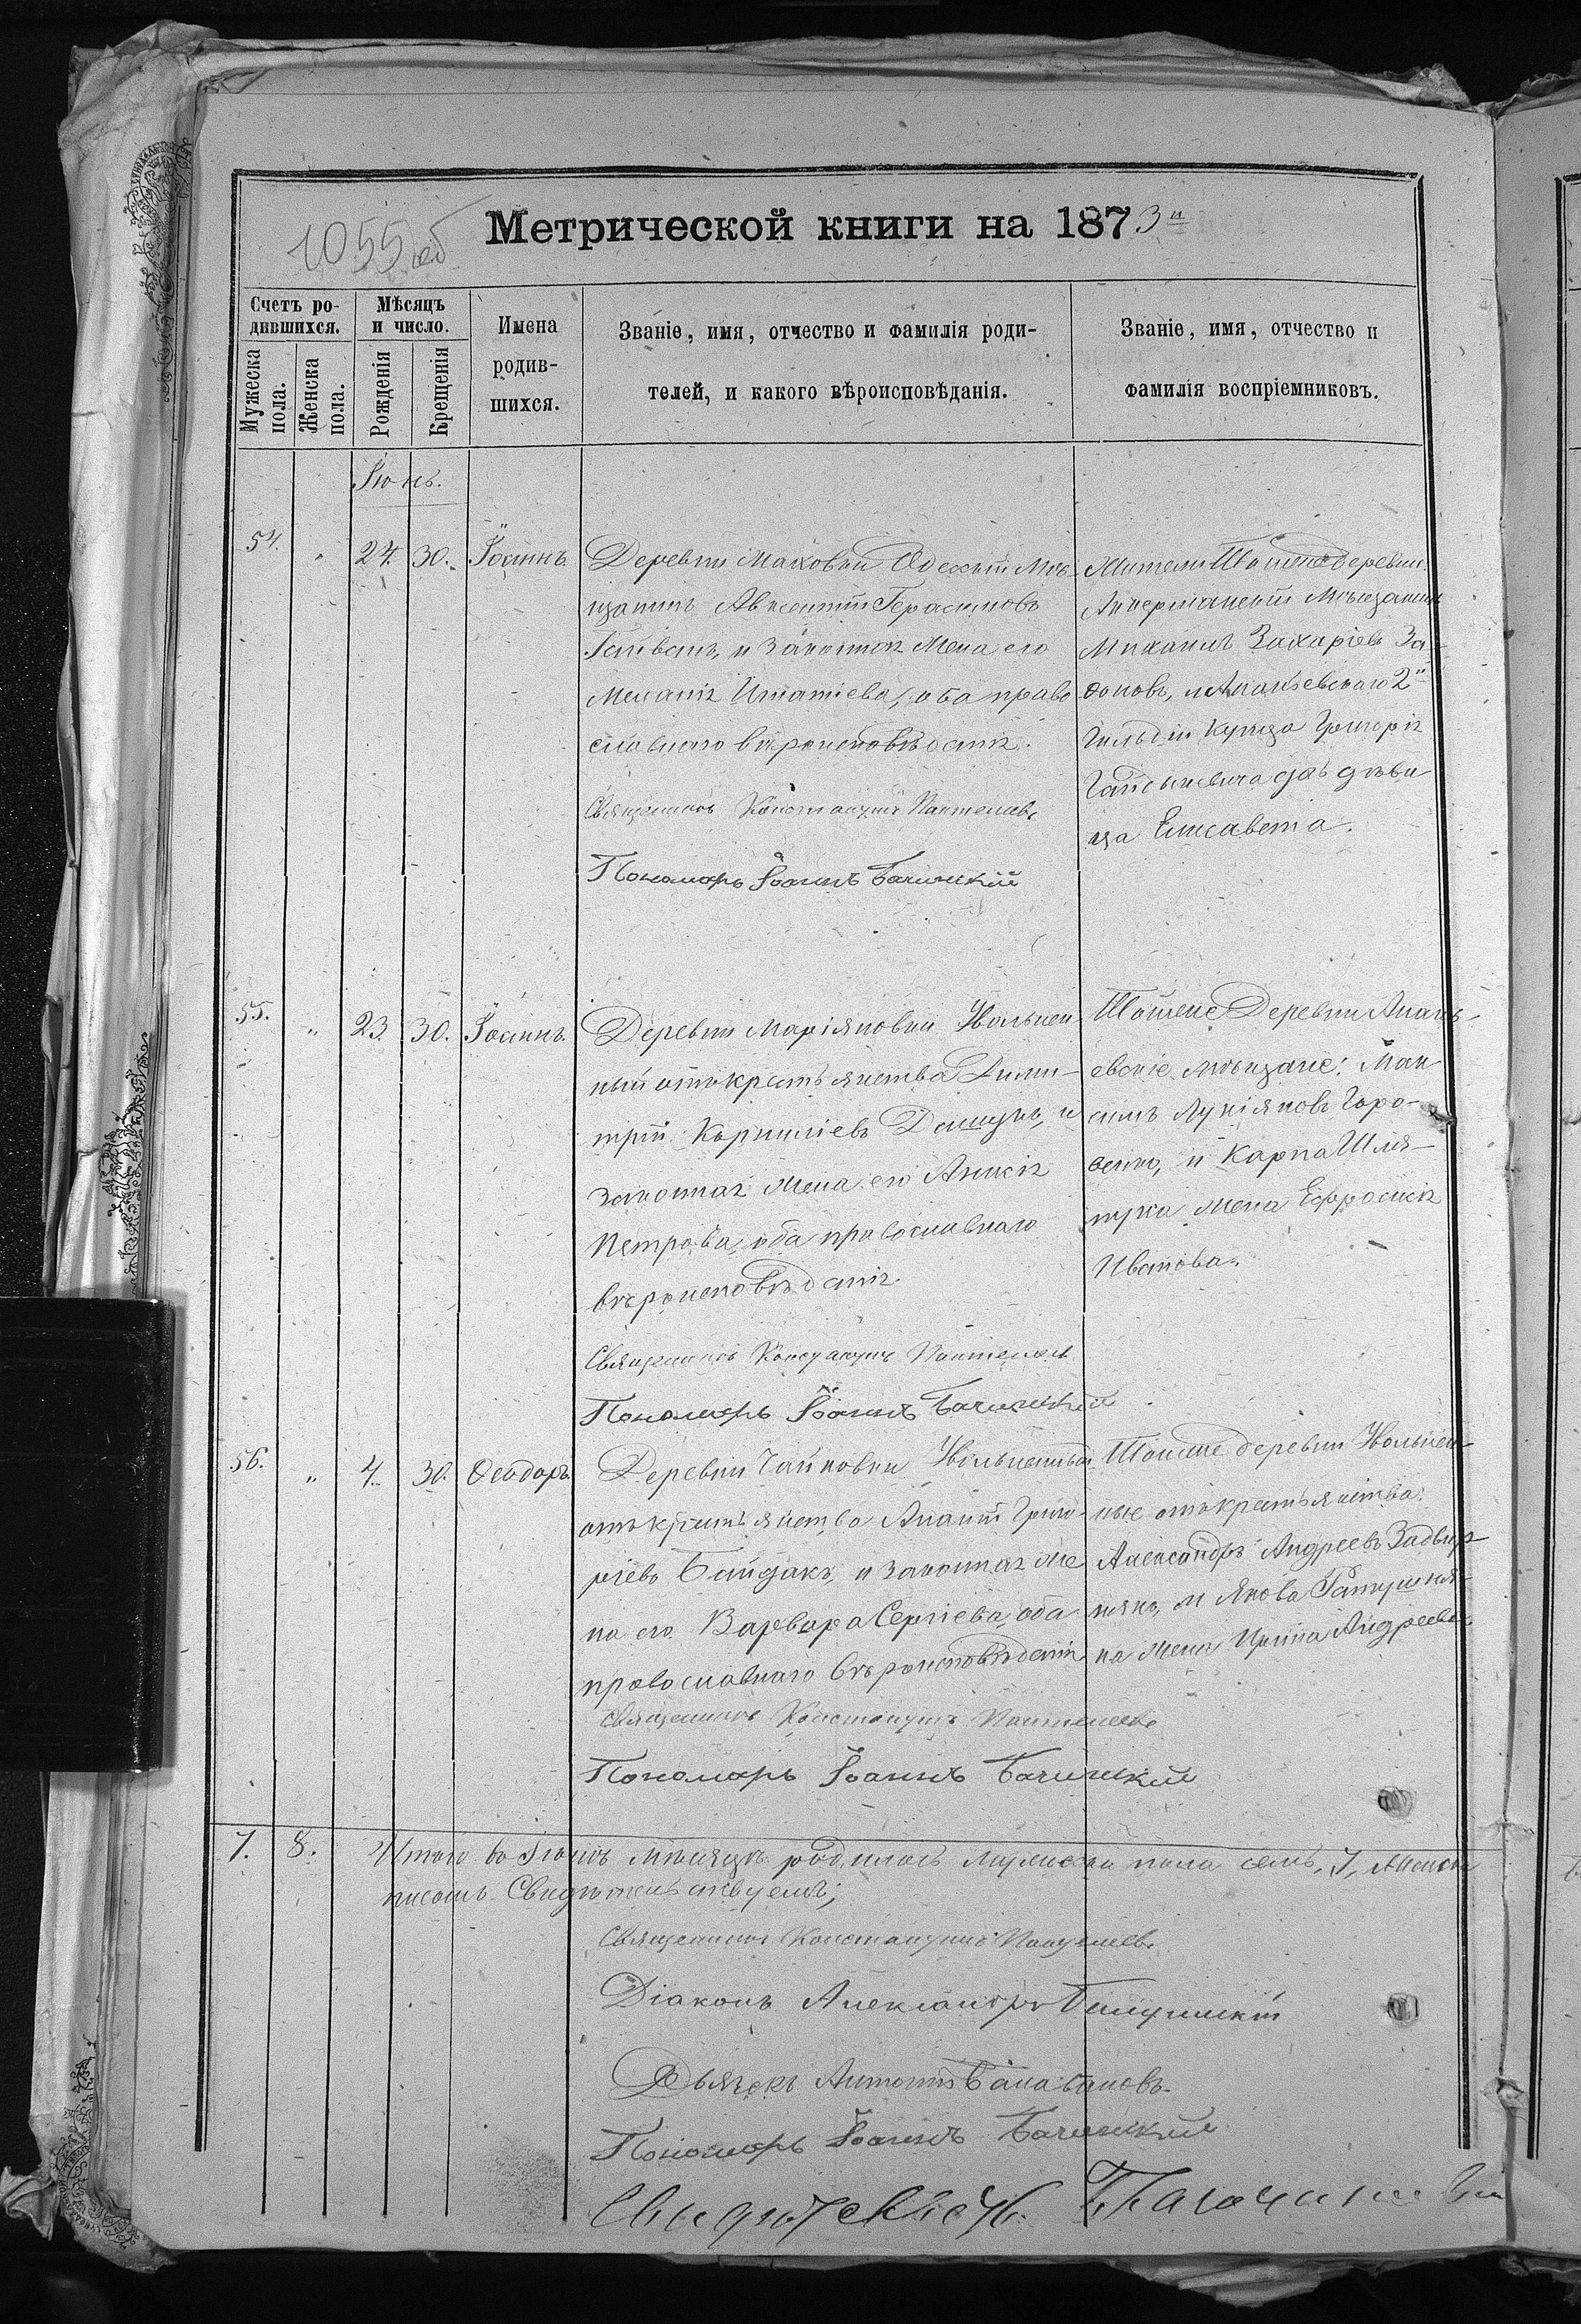 1055 об
Метрической книги на 1873й
Счетъ ро-
дившихся.
Мѣсяцъ
и число.
Мужеска
пола.
Женска
пола.
Рожденія
Крещенія
Имена
родив-
шихся.
Званіе, имя, отчество и фамилія роди-
телей, и какого вѣроисповѣданія.
Званіе, имя, отчество и
фамилія воспріемниковъ.
Іюнь.
54. " 24. 30. Іоаннъ.
Деревни Маховки Одескій Мѣ-
щанинъ Авксентій Герасимовъ
и законная Жена его
Меланія Игнатіева, оба право-
славнаго вѣроисповѣданія.
Священникъ Константинъ Пантелеевъ
Пономарь Іоаннъ Бачинскій
Жители Тойже деревни:
Мѣщанинъ
Михаилъ Захаріевъ За-
и Ананьевскаго 2й
Гильдіи Купца Григорія
дочь дѣви-
ца Елисавета.
55. " 23. 30. Іоаннъ.
Деревни Маріяновки Уволнен-
ный отъ крестьянства Дими-
трій Корниліевъ и
законная Жена его Анисія
Петрова, оба православнаго
вѣроисповѣданія.
Священникъ Константинъ Пантелеевъ
Пономарь Іоаннъ Бачинскій
Тойже Деревни Анань-
евскіе мѣщане: Мак-
симъ Лукіяновъ Горо-
и Карпа Шля-
Жена Ефросинія
Иванова.
56. " 4. 30. Ѳеодоръ
Деревни Чайковки Увольненный
отъ крестьянства Ананій Григо-
ріевъ Байдакъ, и законная Же-
на его Варвара Сергіева, оба
православнаго вѣроисповѣданія
Священникъ Константинъ Пантелеевъ
Пономарь Іоаннъ Бачинскій
Тойже деревни Уволнен-
ные отъ крестьянства:
Александръ Андреевъ Задвор-
някъ, и Якова
на Жена Ирина Андреева
7. 8. Итого во Іюнѣ мѣсяцѣ родилось мужеска пола семь, 7, Женска
Свидѣтельствуемъ;
Священникъ Константинъ Пантелеевъ
Діаконъ Александръ
Дьячекъ Антоній Балабановъ
Пономарь Іоаннъ Бачинскій